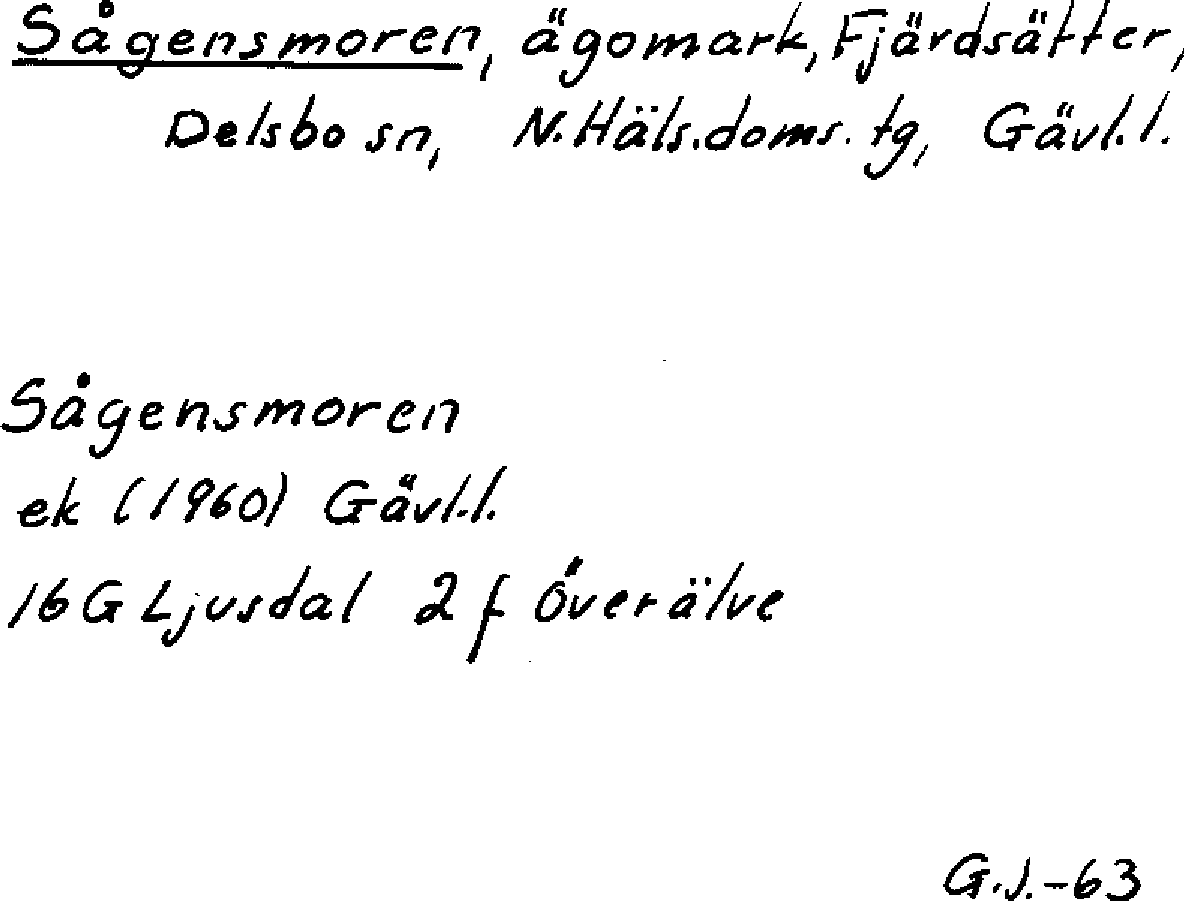 Sågensmoren, ägomark, Fjärdsätter,
Delsbo sn, N.Häls.doms.tg, Gävl.l.
Sågensmoren
ek (1960) Gävl.l.
16G Ljusdal 2 f Överälve
G.J.-63